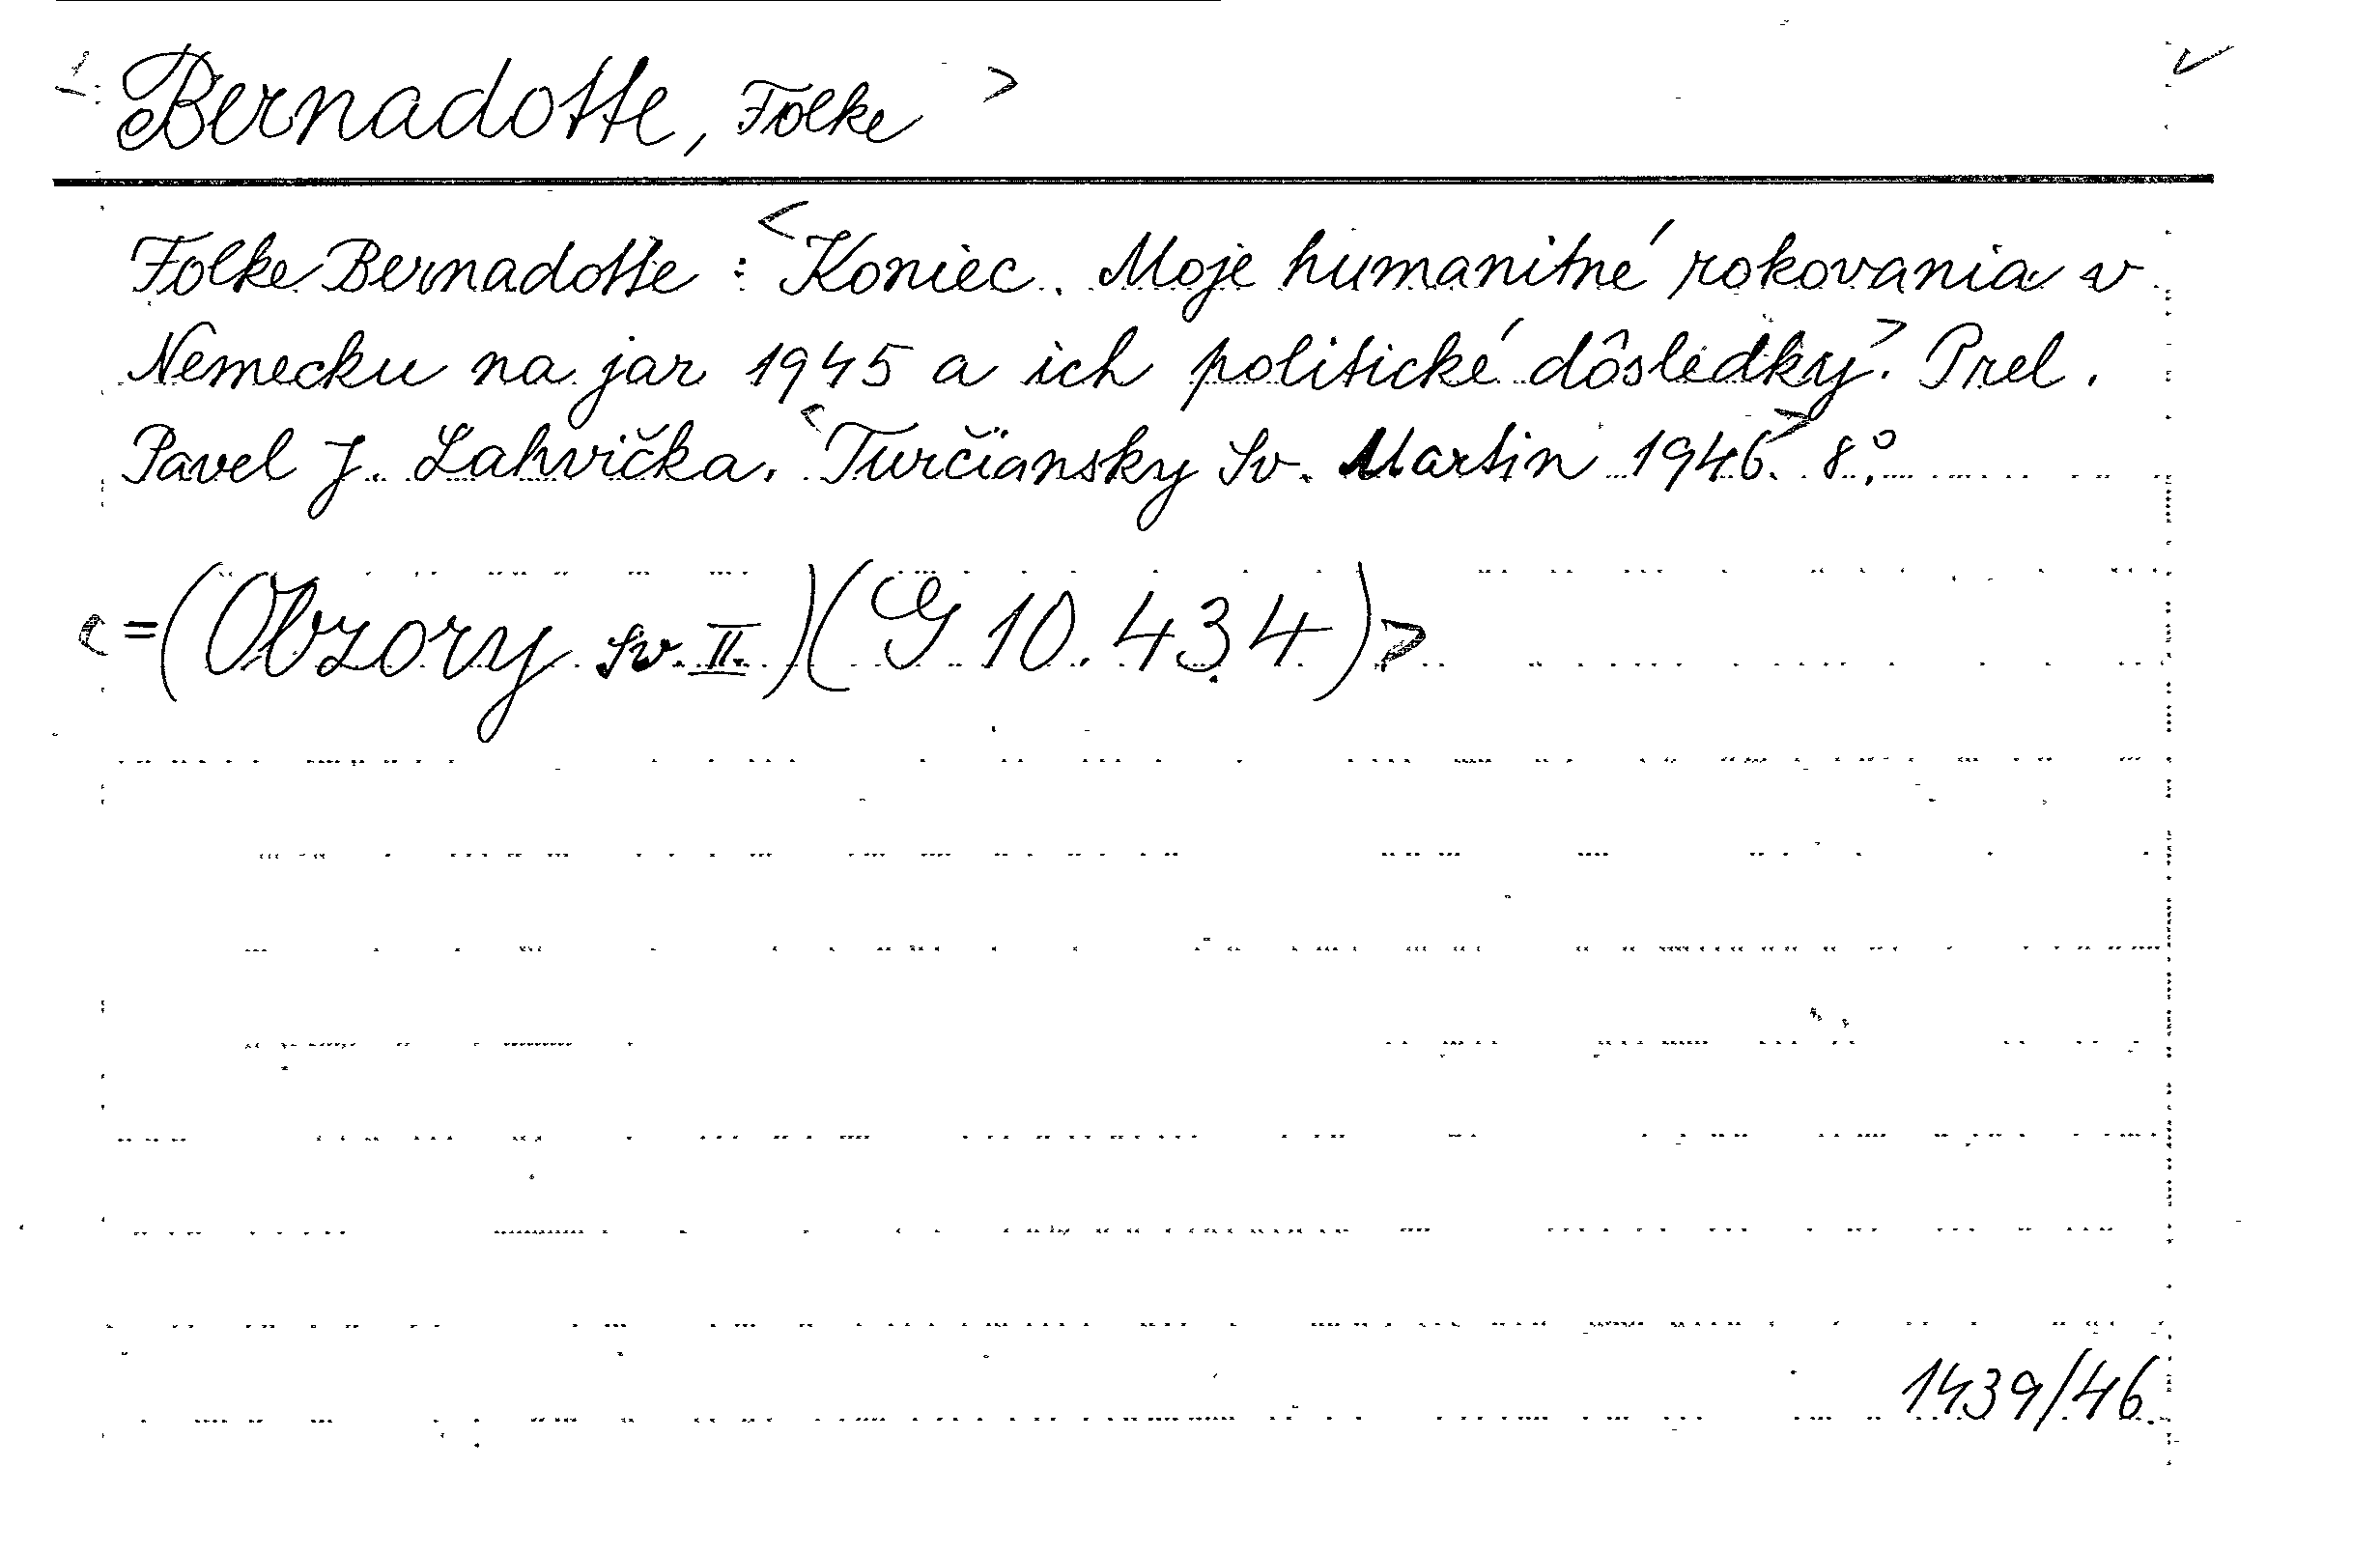 Bernadotte, Folke >
Folke Bernadotte : <Koniec. Moje humanitné rokovania v
Nemecku na jar 1945 a ich politické dôsledky>. Prel.
Pavel J. Lahvička. <Turčiansky Sv. Martin 1946>. 8°.
<=(Obzory sv. II.)(G 10.434)>
1439/46.